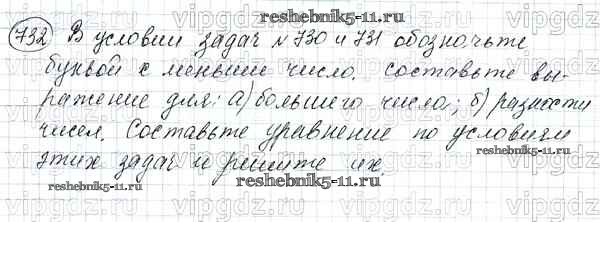 reshebnik5-11.ru
732 В условии задач №730 и 731 обозначьте
буквой x меньшее число. Составьте вы-
ражение для: а) большего числа; б) разности
чисел. Составьте уравнение по условиям
этих задач и решите их.
reshebnik5-11.ru